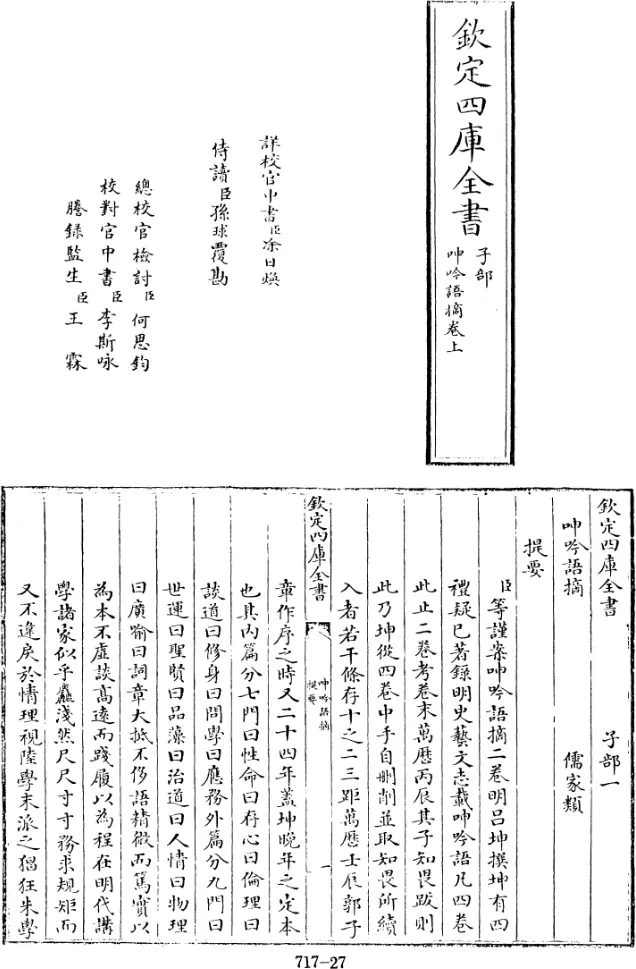 欽定四庫全書
子部
呻吟語摘卷上
詳校官中書臣凃日煥
侍讀臣孫球覆勘
總校官檢討臣何思鈞
校對官中書臣李斯咏
謄錄監生臣王霖
欽定四庫全書 子部一
呻吟語摘 儒家類
提要
臣等謹案呻吟語摘二卷明吕坤撰坤有四
禮疑已著錄明史藝文志載呻吟語凡四卷
此止二卷考卷末萬厯丙辰其子知畏跋則
此乃坤從四卷中手自刪削並取知畏所續
入者若干條存十之二三距萬厯壬辰郭子
欽定四庫全書
呻吟語摘
提要
一
章作序之時又二十四年蓋坤晚年之定本
也其内篇分七門曰性命曰存心曰倫理曰
談道曰修身曰問學曰應務外篇分九門曰
世運曰聖賢曰品藻曰治道曰人情曰物理
曰廣喻曰詞章大抵不侈語精微而篤實以
為本不虛談高遠而踐履以為程在明代講
學諸家似乎麤淺然尺尺寸寸務求規矩而
又不違戾於情理視陸學末派之猖狂朱學
717-27